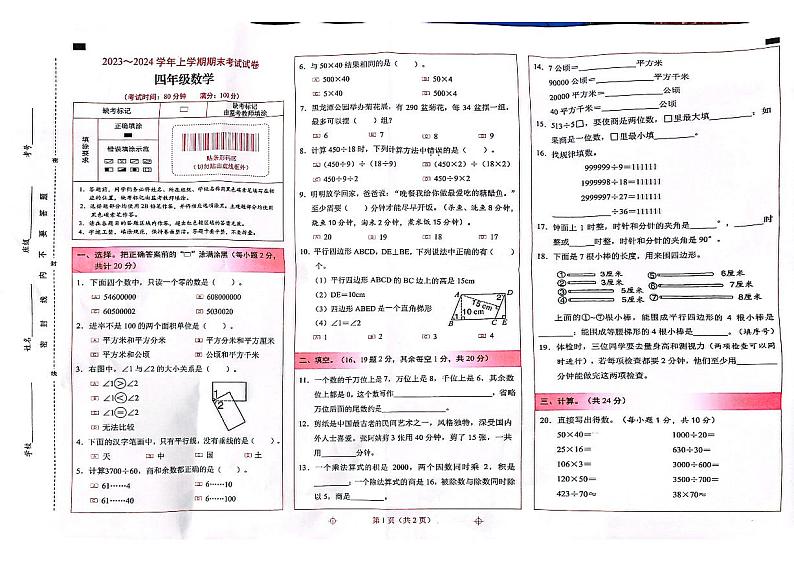 2023～2024 学年上学期期末考试试卷
四年级数学
(考试时间：80 分钟 满分：100 分)
缺考标记
缺考标记
由监考教师填涂
填涂要求
正确填涂
错误填涂示范
贴条形码区
(切勿贴出虚线框外)
1. 答题前，同学们务必将姓名、所在班级、学校名称用黑色碳素笔填写在相
应的位置。缺考标记由监考教师填涂。
一、选择。把正确答案前的“□”涂满涂黑（每小题 2 分，
共计 20 分）
1. 下面四个数中，只读一个零的数是（ ）。
54600000
608000000
60500002
5030020
2. 进率不是 100 的两个面积单位是（ ）。
平方米和平方分米
平方分米和平方厘米
平方米和公顷
公顷和平方千米
3. 右图中，∠1 与∠2 的大小关系是（ ）。
∠1＞∠2
∠1＜∠2
∠1＝∠2
无法比较
1
2
4. 下面的汉字笔画中，只有平行线，没有垂线的是（ ）。
天
中
国
土
5. 计算3700÷60，商和余数都正确的是（ ）。
61……4
6……10
61……40
6……100
6. 与 50×40 结果相同的是（ ）。
500×40
50×4
5×40
500×4
7. 黑龙潭公园举办菊花展，有 290 盆菊花，每 34 盆摆一组，
最多可以摆（ ）组？
6
7
8
9
8. 计算 450÷18 时，下列计算方法中错误的是（ ）。
(450÷9) ÷ (18÷9)
(450×2) ÷ (18×2)
(450÷9) ÷2
(450÷2) × (18÷2)
9. 明明放学回家，爸爸说：“晚餐我给你做最爱吃的糖醋鱼。”
至少需要（ ）分钟才能尽早开饭。（杀鱼、洗鱼 8 分钟，
烧鱼 10 分钟，淘米 2 分钟，煮米饭 15 分钟）。
20
19
18
17
10. 平行四边形 ABCD，DE⊥BE，下列说法中正确的有（ ）
个。
(1) 平行四边形 ABCD 的 BC 边上的高是 15cm
(2) DE=10cm
(3) 四边形 ABED 是一个直角梯形
(4) ∠1＝∠2
A D
15 cm
10 cm
1 2
B C E
1
2
3
4
二、填空。（16、19 题 2 分，其余每空 1 分，共 20 分）
11. 一个数的千万位上是 7，万位上是 8，千位上是 6，其余数
位上都是 0，这个数写作________，省略
万位后面的尾数约是________。
12. 剪纸是中国最古老的民间艺术之一，风格独特，深受国内
外人士喜爱。张阿姨剪 3 张用 40 分钟，剪了 15 张，一共
用________分钟。
13. 一个乘法算式的积是 2000，两个因数同时乘 2，积是
________；一个除法算式的商是 16，被除数与除数同时除
以 5，商是________。
第 1 页（共 2 页）
14. 7 公顷=________平方米
90000 公顷=________平方千米
20000 平方米=________公顷
40 平方千米=________公顷
15. 513÷5□，要使商是两位数，□里最大填________；如
果商是一位数，□里最小填________。
16. 找规律填数。
999999÷9=111111
1999998÷18=111111
2999997÷27=111111
________÷36=111111
17. 钟面上 1 时整，时针和分针的夹角是________°，____时
整或____时整，时针和分针的夹角是 90°。
18. 下面是 7 根小棒的长度，用来围四边形。
① 3厘米
② 3厘米
③ 3厘米
④ 5厘米
⑤ 6厘米
⑥ 7厘米
⑧ 8厘米
上面的①~⑦根小棒，能围成平行四边形的 4 根小棒是
________；能围成等腰梯形的 4 根小棒是________。（填序号）
19. 体检时，三位同学要去量身高和测视力（两项检查可以同
时进行），若每项检查都要 2 分钟，他们至少用________
分钟能做完这两项检查。
三、计算。（共 24 分）
20. 直接写出得数。（每小题 1 分，共 10 分）
50×40＝
1000÷20＝
25×16＝
630÷30＝
106×3＝
3000÷60＝
120×50＝
3500÷700＝
423÷70≈
38×70≈
学校
姓名
班级
考号
密 封 线 内 不 要 答 题